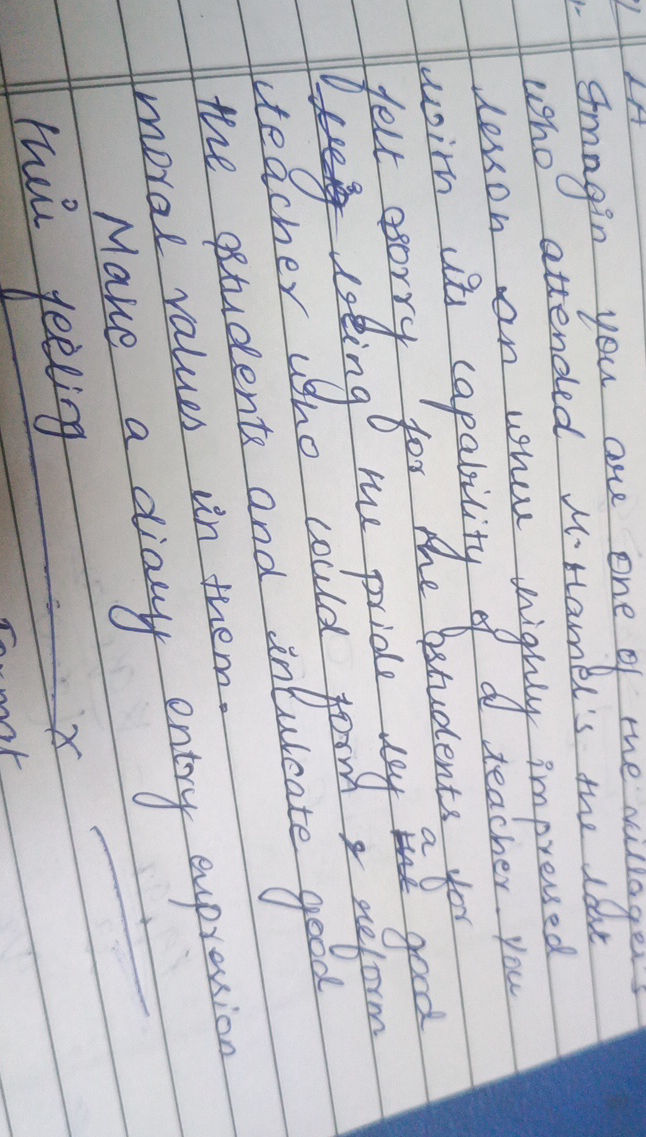 LA
Imagin you are one of the villagers
who attended M. Hamel's the last
lesson an whix highly impressed
with its capability of a teacher. You
felt sorry for the students for
loging the pride by a good
teacher who could form & reform
the students and inlulcate good
moral values in them.
Make a diary entry expression
this feeling x
Format